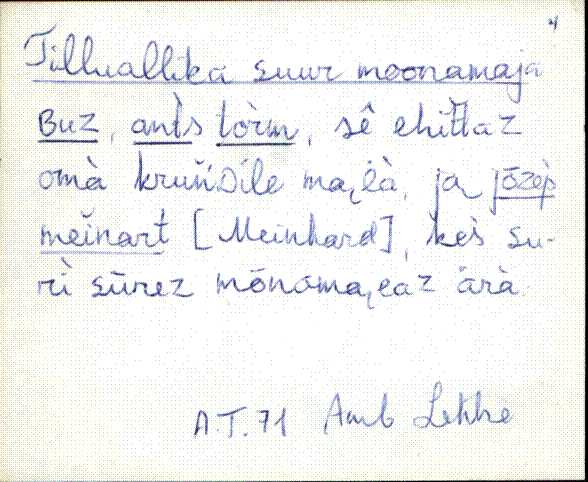 4
Tilluallika suur moonamaja
Buz, ant̀s tòrm, sê ehiťťaz
omà kruńDile ma̮i̯à, ja jōzèp
meĭnart [Meinhard], keś su-
rì sūrez mōnama̮eaz ärà.
A.T. 71 Amb Lehhe